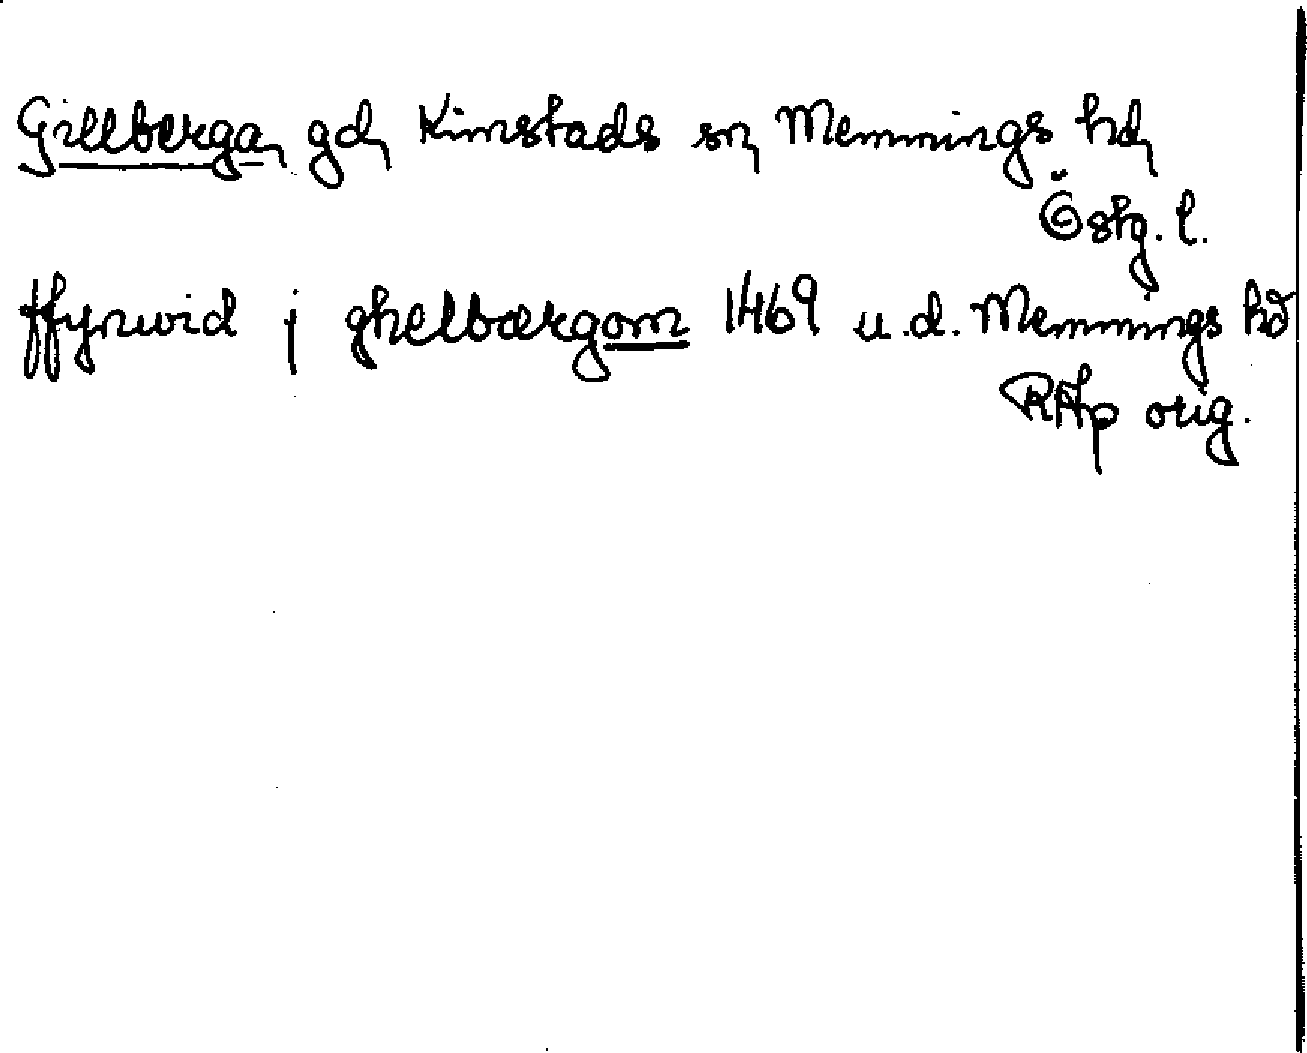 Gillberga, gd, Kimstads sn, Memmings hd,
Östg. l.
ffynwid j ghelbærgom 1469 u.d. Memmings hd
RAp orig.